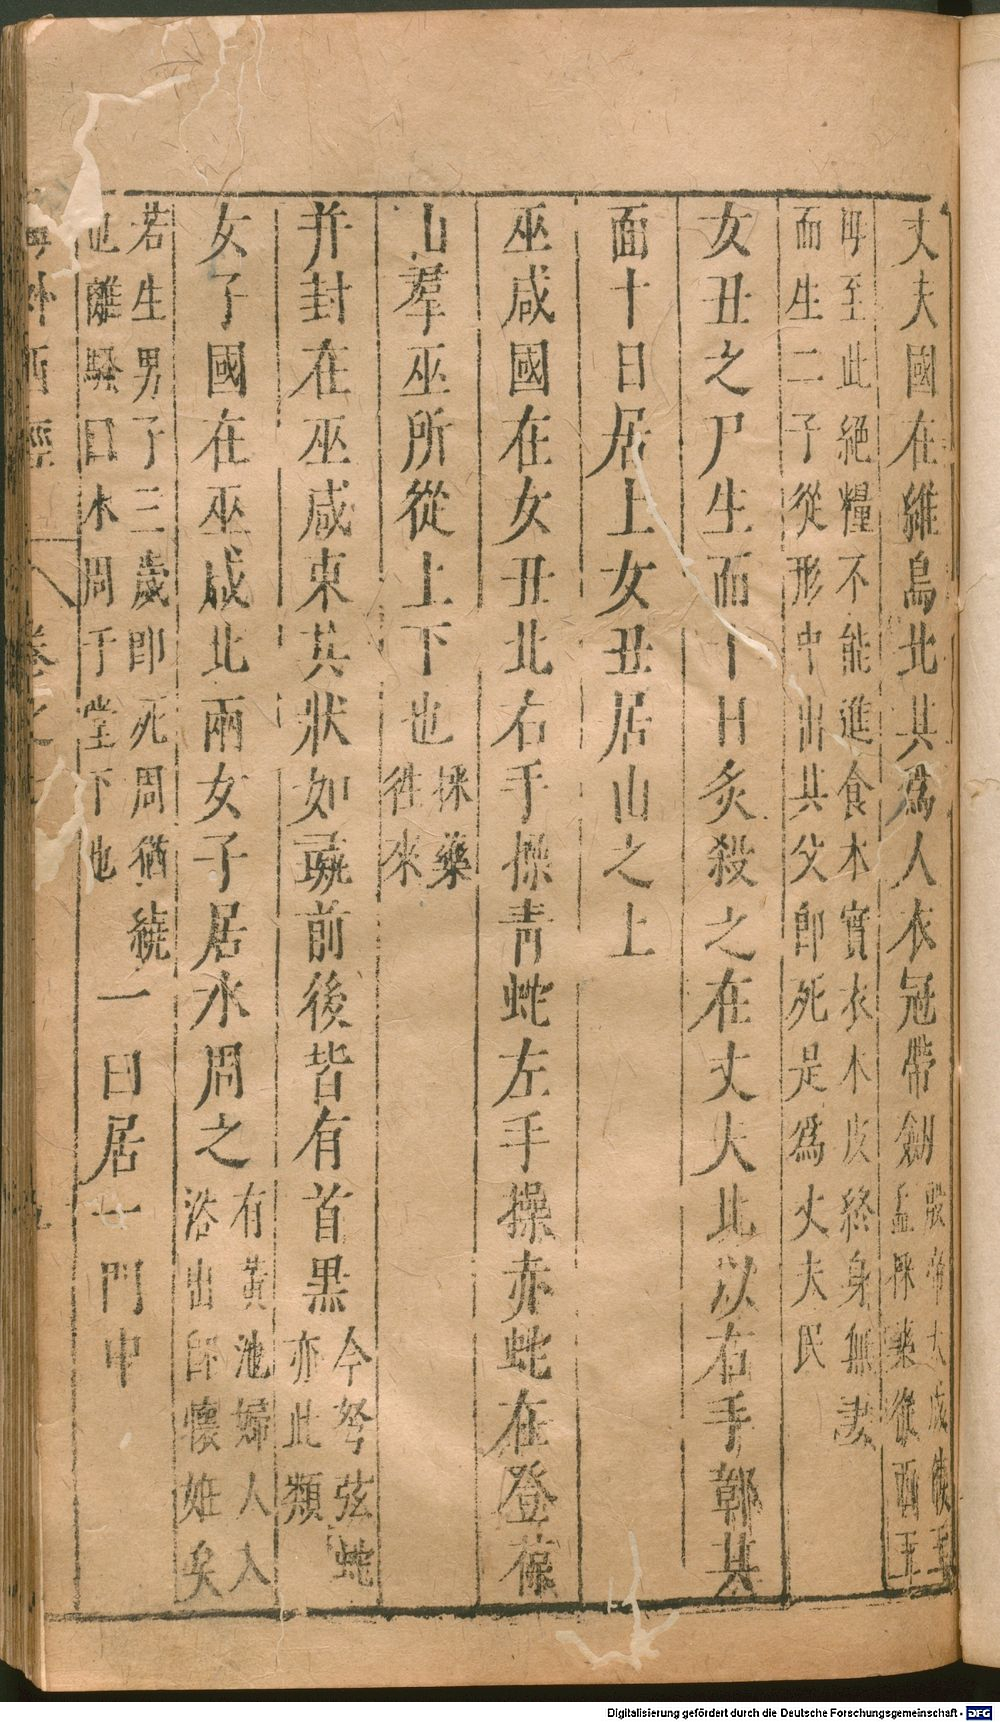 丈夫國在維鳥北其爲人衣冠帶劔殷帝大戊使王孟採藥從西王
母至此絕糧不能進食木實衣木皮終身無妻
而生二子從形中出其父卽死是爲丈夫民
女丑之尸生而十日炙殺之在丈夫北以右手鄣其
面十日居上女丑居山之上
巫咸國在女丑北右手操青蛇左手操赤蛇在登葆
山羣巫所從上下也採藥往來
并封在巫咸東其狀如彘前後皆有首黑今弩弦蛇亦此類
女子國在巫咸北兩女子居水周之有黃池婦人入浴出卽懷姙矣
若生男子三歲卽死周猶繞
也離騷曰水周于堂下也一曰居一門中
海外西經 卷之七
Digitalisierung gefördert durch die Deutsche Forschungsgemeinschaft - DFG